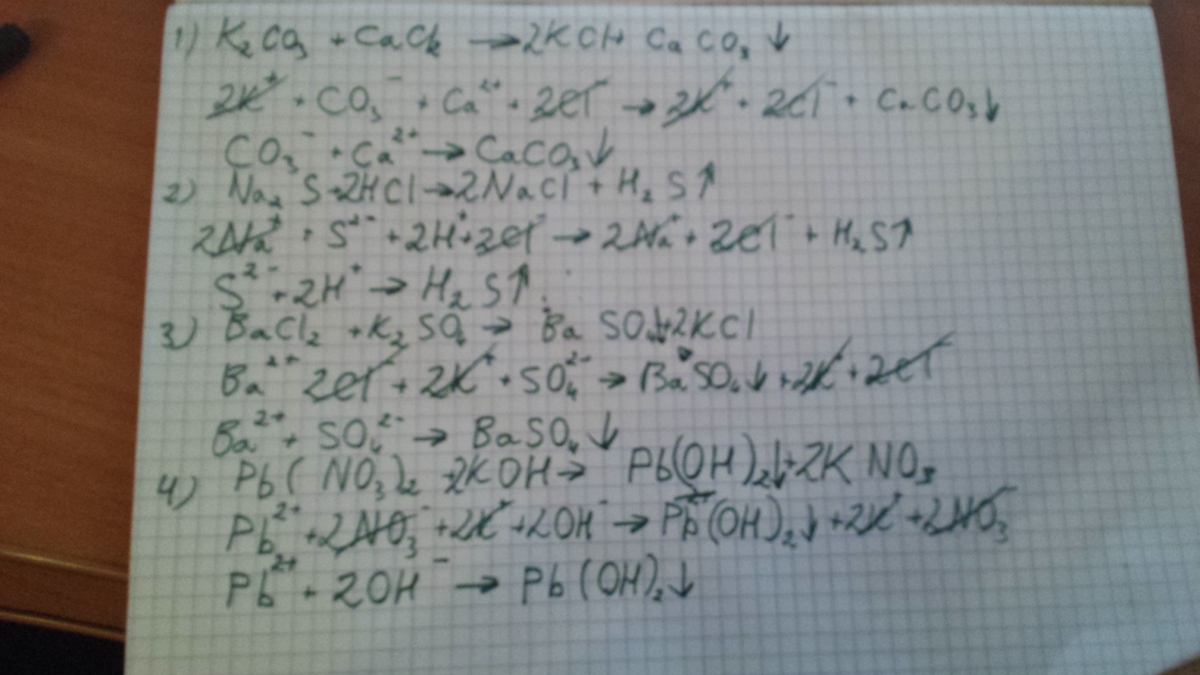 1) K₂CO₃ + CaCl₂ → 2KCl + CaCO₃ ↓
2K⁺ + CO₃⁻ + Ca²⁺ + 2Cl⁻ → 2K⁺ + 2Cl⁻ + CaCO₃↓
CO₃⁻ + Ca²⁺ → CaCO₃↓
2) Na₂S + 2HCl → 2NaCl + H₂S↑
2Na⁺ + S²⁻ + 2H⁺ + 2Cl⁻ → 2Na⁺ + 2Cl⁻ + H₂S↑
S²⁻ + 2H⁺ → H₂S↑
3) BaCl₂ + K₂SO₄ → BaSO₄↓ + 2KCl
Ba²⁺ 2Cl⁻ + 2K⁺ + SO₄²⁻ → BaSO₄↓ + 2K⁺ + 2Cl⁻
Ba²⁺ + SO₄²⁻ → BaSO₄↓
4) Pb(NO₃)₂ + 2KOH → Pb(OH)₂↓ + 2KNO₃
Pb²⁺ + 2NO₃⁻ + 2K⁺ + 2OH⁻ → Pb(OH)₂↓ + 2K⁺ + 2NO₃⁻
Pb²⁺ + 2OH⁻ → Pb(OH)₂↓